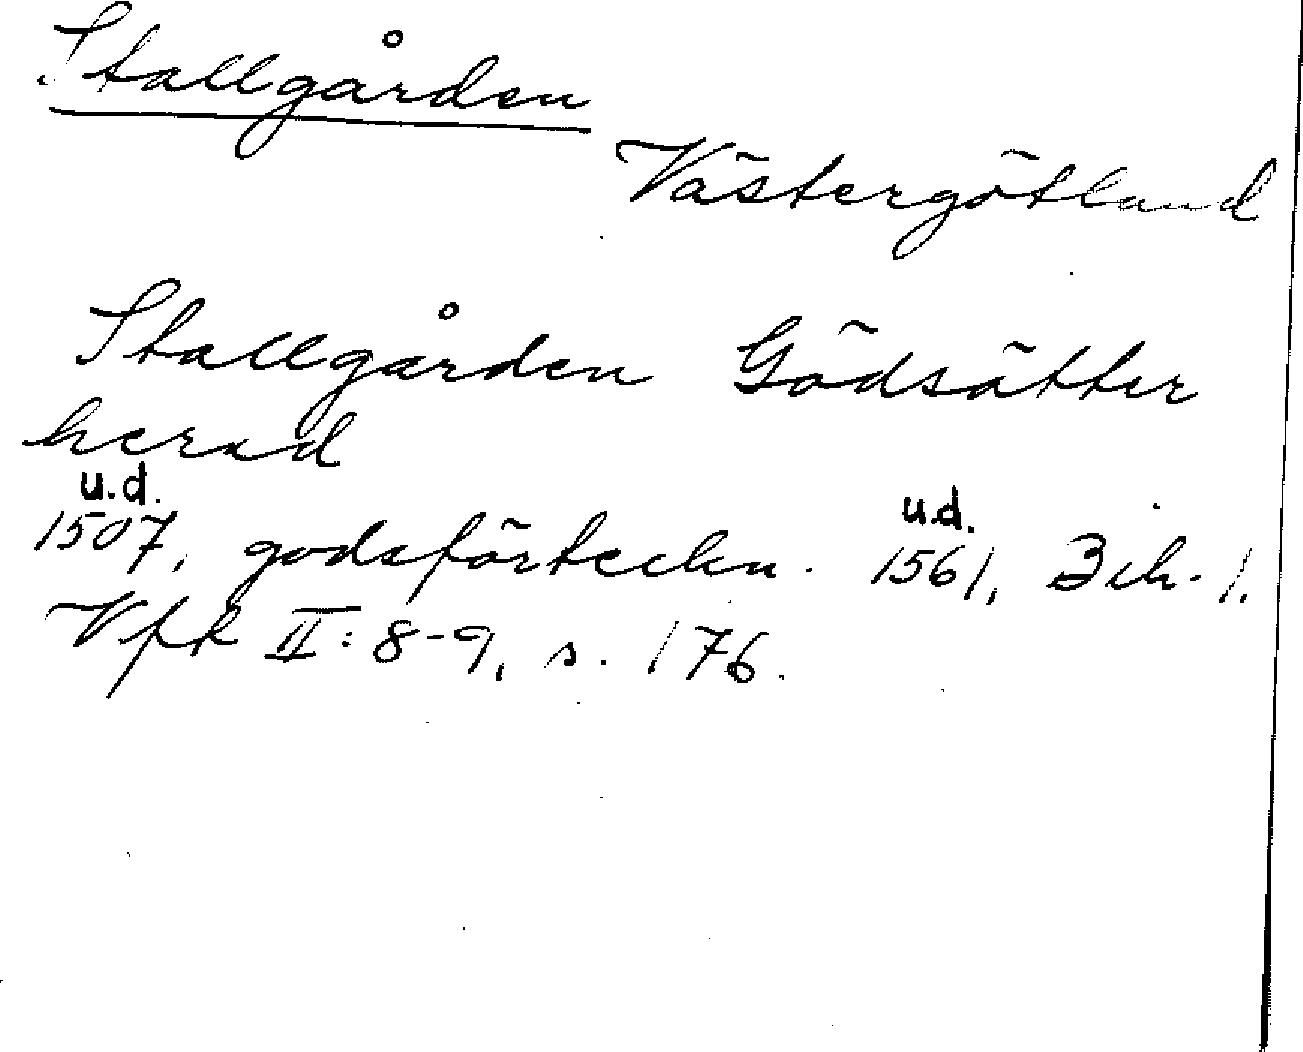 Stallgården
Västergötland
Stallgården Gödsätter
herad
u.d. u.d.
1507, godsförteckn. 1561, Bih. 1.
VfR II: 8-9, s. 176.